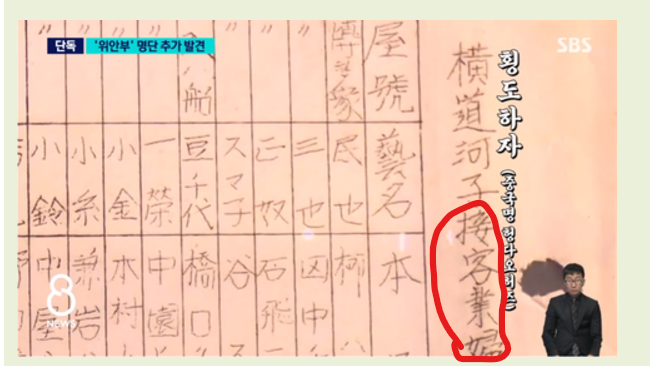 단독 '위안부' 명단 추가 발견
SBS
횡도하자 (중국명 헝다오허즈)
橫道河子接客業婦
屋號 藝名 本
民也 柳
三也 中
正奴 石飛
スマ子 谷
豆千代 橋口
一榮 中園
小金 木村
小糸 兼岩
小鈴 中屋
8 NEWS